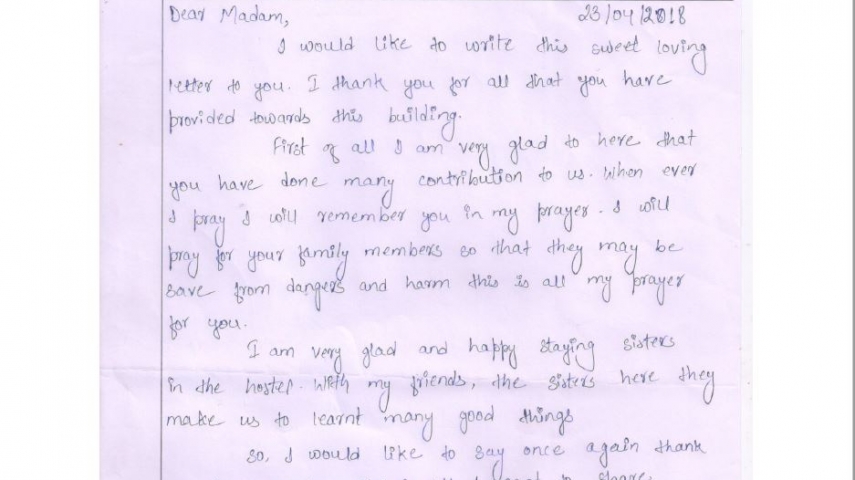 Dear Madam, 23/04/2018
I would like to write this sweet loving
letter to you. I thank you for all that you have
provided towards this building.
First of all I am very glad to here that
you have done many contribution to us. When ever
I pray I will remember you in my prayer. I will
pray for your family members so that they may be
save from dangers and harm this is all my prayer
for you.
I am very glad and happy staying sisters
in the hostel. With my friends, the sisters here they
make us to learnt many good things
So, I would like to say once again thank